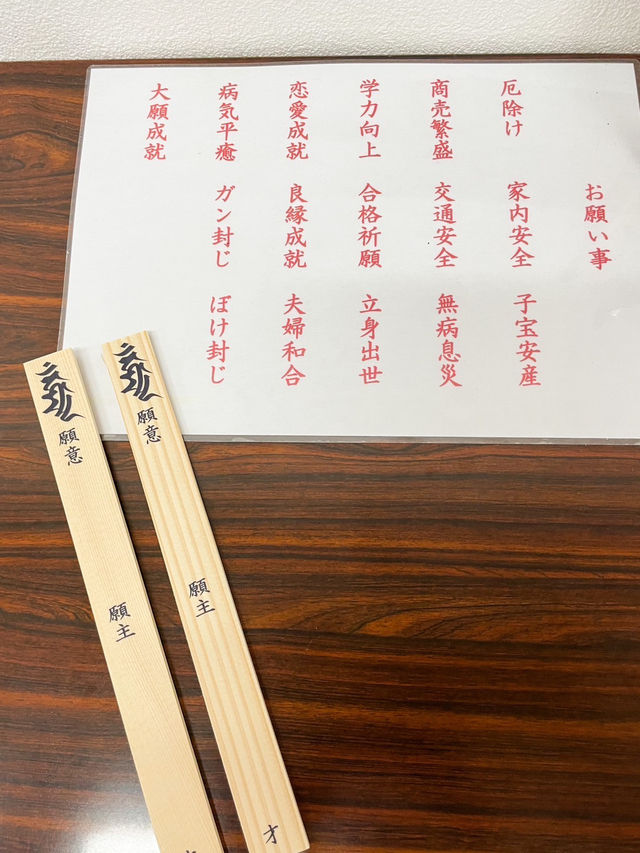 お願い事
厄除け
家内安全
子宝安産
商売繁盛
交通安全
無病息災
学力向上
合格祈願
立身出世
恋愛成就
良縁成就
夫婦和合
病気平癒
ガン封じ
ぼけ封じ
大願成就
願意
願主
才
願意
願主